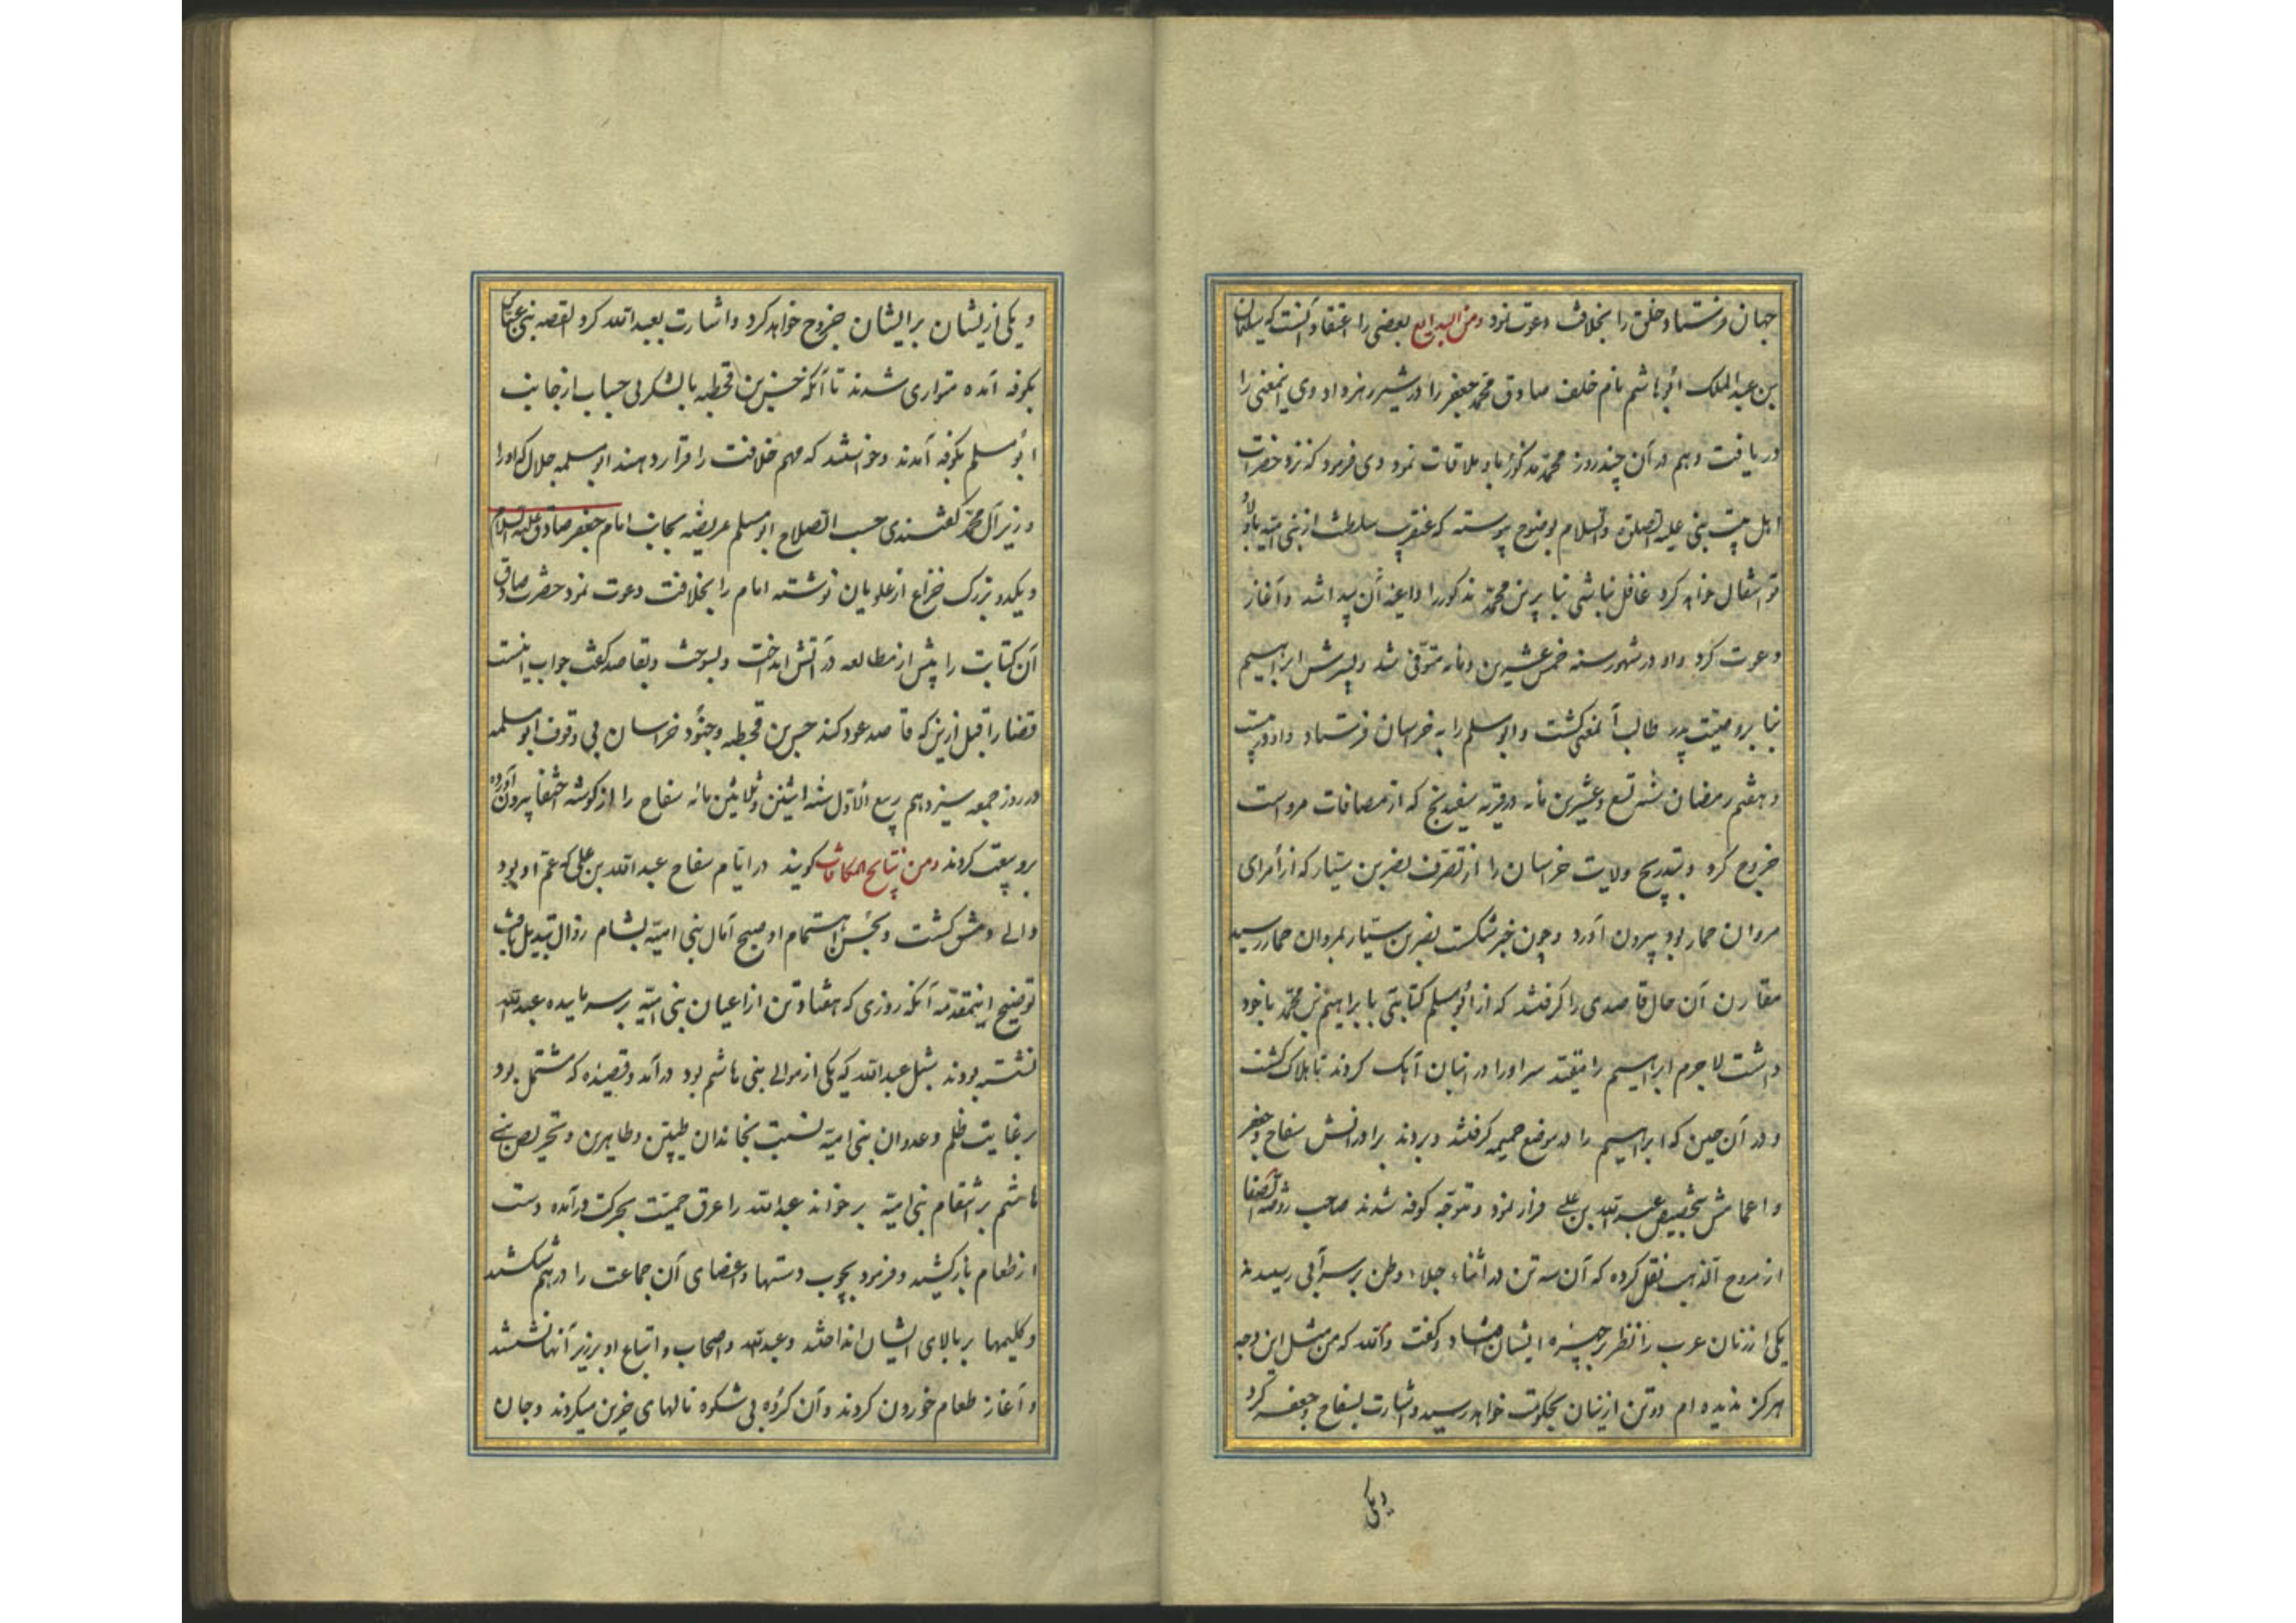 جهان فرستاد و خلق را بخلافت دعوت نمود ومن البدایع بعضی را اعتقاد آنست که سلیمان
بن عبدالملک ابوهاشم نام خلف صادق محمد جعفر را در شیر زهر داد وی اینمعنی را
دریافت و هم در آن چند روز محمد مذکور باو ملاقات نمود وی فرمود که نزد حضرات
اهل بیت نبی علیه الصلوة والسلام بوضوح پیوسته که عنقریب سلطنت از بنی امیه باولاد
تو انتقال خواهد کرد غافل نباشی بنابرین محمد مذکور را داعیه آن پیدا شد و آغاز
دعوت کرد و او در شهور سنه خمس عشرین و مأیه متوفی شد و پسرش ابراهیم
بنا بر وصیت پدر طالب آنمعنی گشت و ابومسلم را به خراسان فرستاد و او در بیست
و هفتم رمضان سنه تسع و عشرین مأیه در قریه سفیدنج که از مضافات مرو است
خروج کرد و بتدریج ولایت خراسان را از تصرف نصر بن سیار که از امرای
مروان حمار بود بیرون آورد و چون خبر شکست نصر بن سیار بمروان حمار رسید
مقارن آن حال قاصدی را گرفتند که از ابومسلم کتابتی بابراهیم بن محمد با خود
داشت لاجرم ابراهیم را مقید سر او را در انبان آهک کردند تا هلاک گشت
و در آن حین که ابراهیم را در موضع حمیمه گرفتند و بردند برادرانش سفاح و جعفر
و اعمامش بتخصیص عبدالله بن علی فرار نمود و متوجه کوفه شدند صاحب روضة الصفا
از مروج الذهب نقل کرده که آن سه تن در اثناء جلاء وطن بر سر آبی رسیدند
یکی از زنان عرب را نظر بر چهره ایشان افتاد و گفت والله که من مثل این وجه
هرگز ندیده ام دو تن ازینان بحکومت خواهد رسید و اشارت بسفاح و جعفر کرد
ویکی
و یکی ازیشان برایشان خروج خواهد کرد و اشارت بعبدالله کرد القصه بنی عباس
بکوفه آمده متواری شدند تا آنکه حسن بن قحطبه با لشکر بی حساب از جانب
ابومسلم بکوفه آمدند و خواستند که مهم خلافت را قرار دهند ابوسلمه جلال که او را
وزیر آل محمد گفتندی حسب الصلاح ابومسلم عریضه بجانب امام جعفر صادق علیه السلام
و یکدو بزرگ از علویان نوشته امام را بخلافت دعوت نمود حضرت صادق
آن کتابت را پیش از مطالعه در آتش انداخت و بسوخت و بقاصد گفت جواب اینست
قضا را قبل ازین که قاصد عود کند حسن بن قحطبه و جنود خراسان بی وقوف ابوسلمه
در روز جمعه سیزدهم ربیع الاول سنه اثنین و ثلاثین مائه سفاح را از گوشه اختفا بیرون آورده
برو بیعت کردند ومن نتایج المکافات گویند در ایام سفاح عبدالله بن علی که عم او بود
والی دمشق گشت و بحسن اهتمام او صبح آمال بنی امیه بشام زوال تبدیل یافت
توضیح اینمقدمه آنکه روزی که هفتاد تن از اعیان بنی امیه بر سر مایده عبدالله
نشسته بودند شبل عبدالله که یکی از موالی بنی هاشم بود درآمد و قصیده که مشتمل بود
بر غایت ظلم و عدوان بنی امیه نسبت بخاندان طیبین و طاهرین و تحریص بنی
هاشم بر انتقام بنی امیه بر خواند عبدالله را عرق حمیت بحرکت درآمده دست
از طعام باز کشید و فرمود بچوب دستها و اعضای آن جماعت را در هم شکستند
و گلیمها بر بالای ایشان انداختند و عبدالله و اصحاب و اتباع او بر زبر آنها نشستند
و آغاز طعام خوردن کردند و آن گروه بی شکوه نالهای حزین میکردند و جان